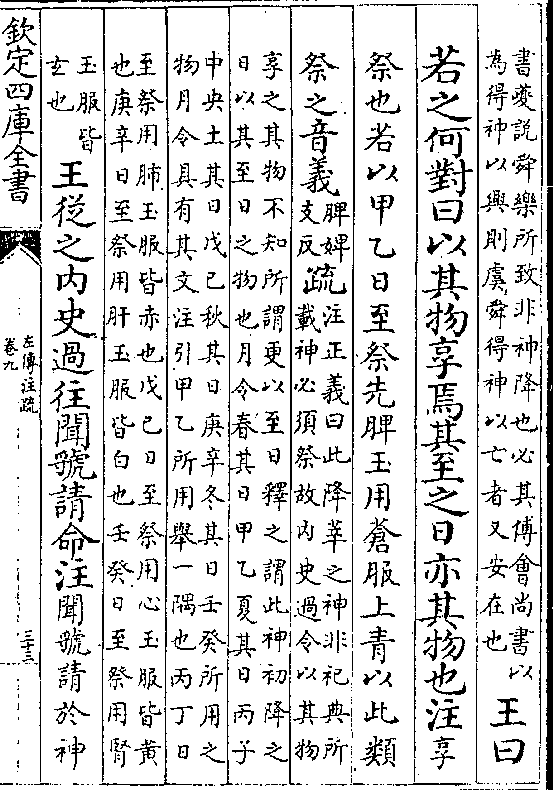 書夔説舜樂所致非神降也必其傅會尚書以
為得神以興則虞舜得神以亡者又安在也
王曰
若之何對曰以其物享焉其至之日亦其物也注享
祭也若以甲乙日至祭先脾玉用蒼服上青以此類
祭之音義
脾婢
支反
疏
注正義曰此降莘之神非祀典所
載神必須祭故内史過令以其物
享之其物不知所謂更以至日釋之謂此神初降之
日以其至日之物也月令春其日甲乙夏其日丙子
中央土其日戊巳秋其日庚辛冬其日壬癸所用之
物月令具有其文注引甲乙所用舉一隅也丙丁日
至祭用肺玉服皆赤也戊巳日至祭用心玉服皆黄
也庚辛日至祭用肝玉服皆白也壬癸日至祭用腎
玉服皆
玄也
王從之内史過往聞虢請命注聞虢請於神
欽定四庫全書
左傳注疏
卷九
三十三